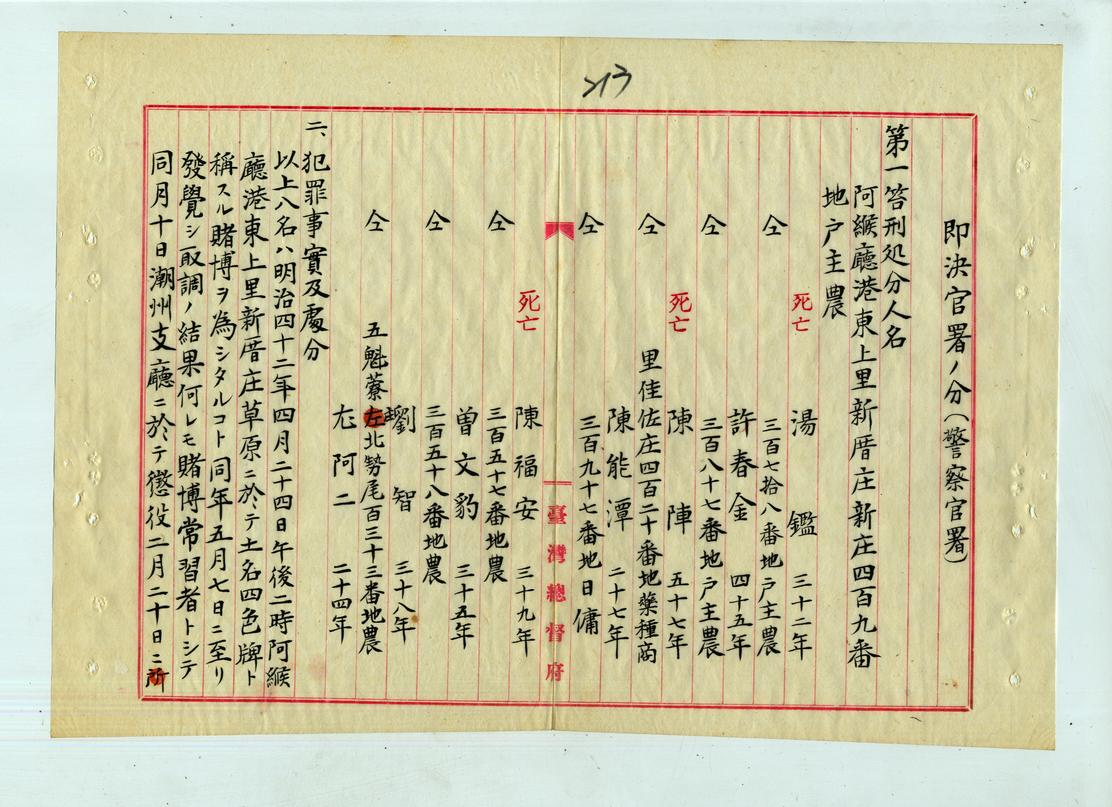 213
即決官署ノ分(警察官署)
第一笞刑処分人名
阿緱廳港東上里新厝庄新庄四百九番
地戸主農
死亡 湯鑑 三十二年
仝 三百七拾八番地戸主農
許春金 四十五年
仝 三百八十七番地戸主農
死亡 陳陣 五十七年
仝 里佳佐庄四百二十番地藥種商
陳能潭 二十七年
仝 三百九十七番地日傭
臺灣總督府
死亡 陳福安 三十九年
仝 三百五十七番地農
曽文豹 三十五年
仝 三百五十八番地農
劉智 三十八年
仝 五魁藔庄北勢尾百三十三番地農
尤阿二 二十四年
二、犯罪事實及處分
以上八名ハ明治四十二年四月二十四日午後二時阿緱
廳港東上里新厝庄草原ニ於テ土名四色牌ト
稱スル賭博ヲ為シタルコト同年五月七日ニ至リ
發覺シ取調ノ結果何レモ賭博常習者トシテ
同月十日潮州支廳ニ於テ懲役二月二十日ニ所